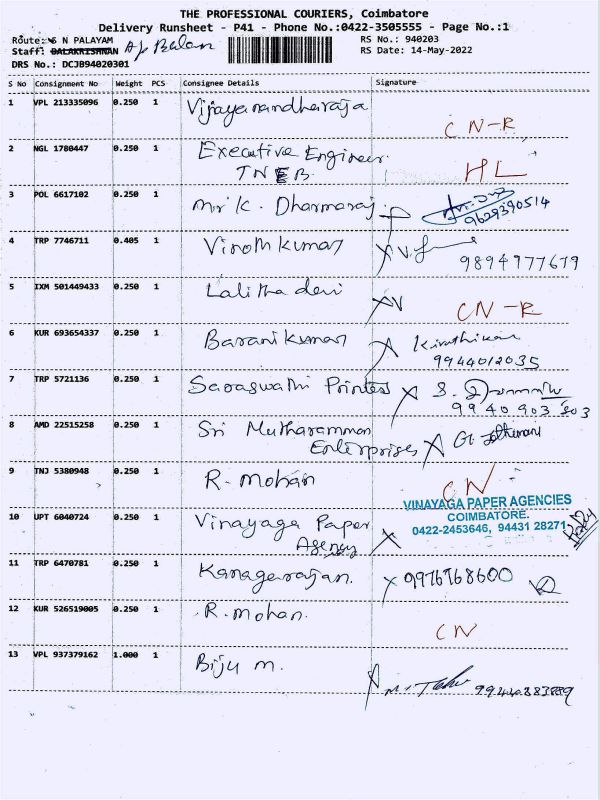 THE PROFESSIONAL COURIERS, Coimbatore
Delivery Runsheet - P41 - Phone No.:0422-3505555 - Page No.:1
Route: S N PALAYAM
RS No.: 940203
Staff: BALAKRISHNAN Ap Balan
RS Date: 14-May-2022
DRS No.: DCJB94020301
S No Consignment No Weight PCS Consignee Details Signature
1 VPL 213335096 0.250 1 Vijayanandharaja
CN-R
2 NGL 1780447 0.250 1 Executive Engineer
TNEB HL
3 POL 6617102 0.250 1 Mr K. Dharmaraj
9629390514
4 TRP 7746711 0.405 1 Vinoth kumar
9894977679
5 IXM 501449433 0.250 1 Lalitha devi
CN-R
6 KUR 693654337 0.250 1 Barani kumar
9944012035
7 TRP 5721136 0.250 1 Saraswathi Printers
9940903303
8 AMD 22515258 0.250 1 Sri Mutharamman
Enterprises
9 TNJ 5380948 0.250 1 R. mohan
CN
VINAYAGA PAPER AGENCIES
COIMBATORE.
0422-2453646, 94431 28271
10 UPT 6040724 0.250 1 Vinayaga Paper
Agency
11 TRP 6470781 0.250 1 Kanagarajan. 9976768600
12 KUR 526519005 0.250 1 R. mohan.
CN
13 VPL 937379162 1.000 1 Biju m.